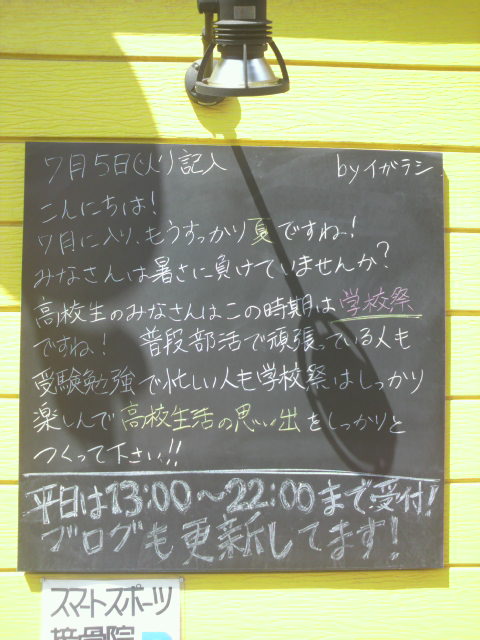 7月5日(火)記入 byイガラシ
こんにちは!
7月に入り、もうすっかり夏ですね!
みなさんは暑さに負けていませんか?
高校生のみなさんはこの時期は学校祭
ですね! 普段部活で頑張っている人も
受験勉強で忙しい人も学校祭はしっかり
楽しんで高校生活の思い出をしっかりと
つくって下さい!!
平日は13:00~22:00まで受付!
ブログも更新してます!
スマートスポーツ
接骨院